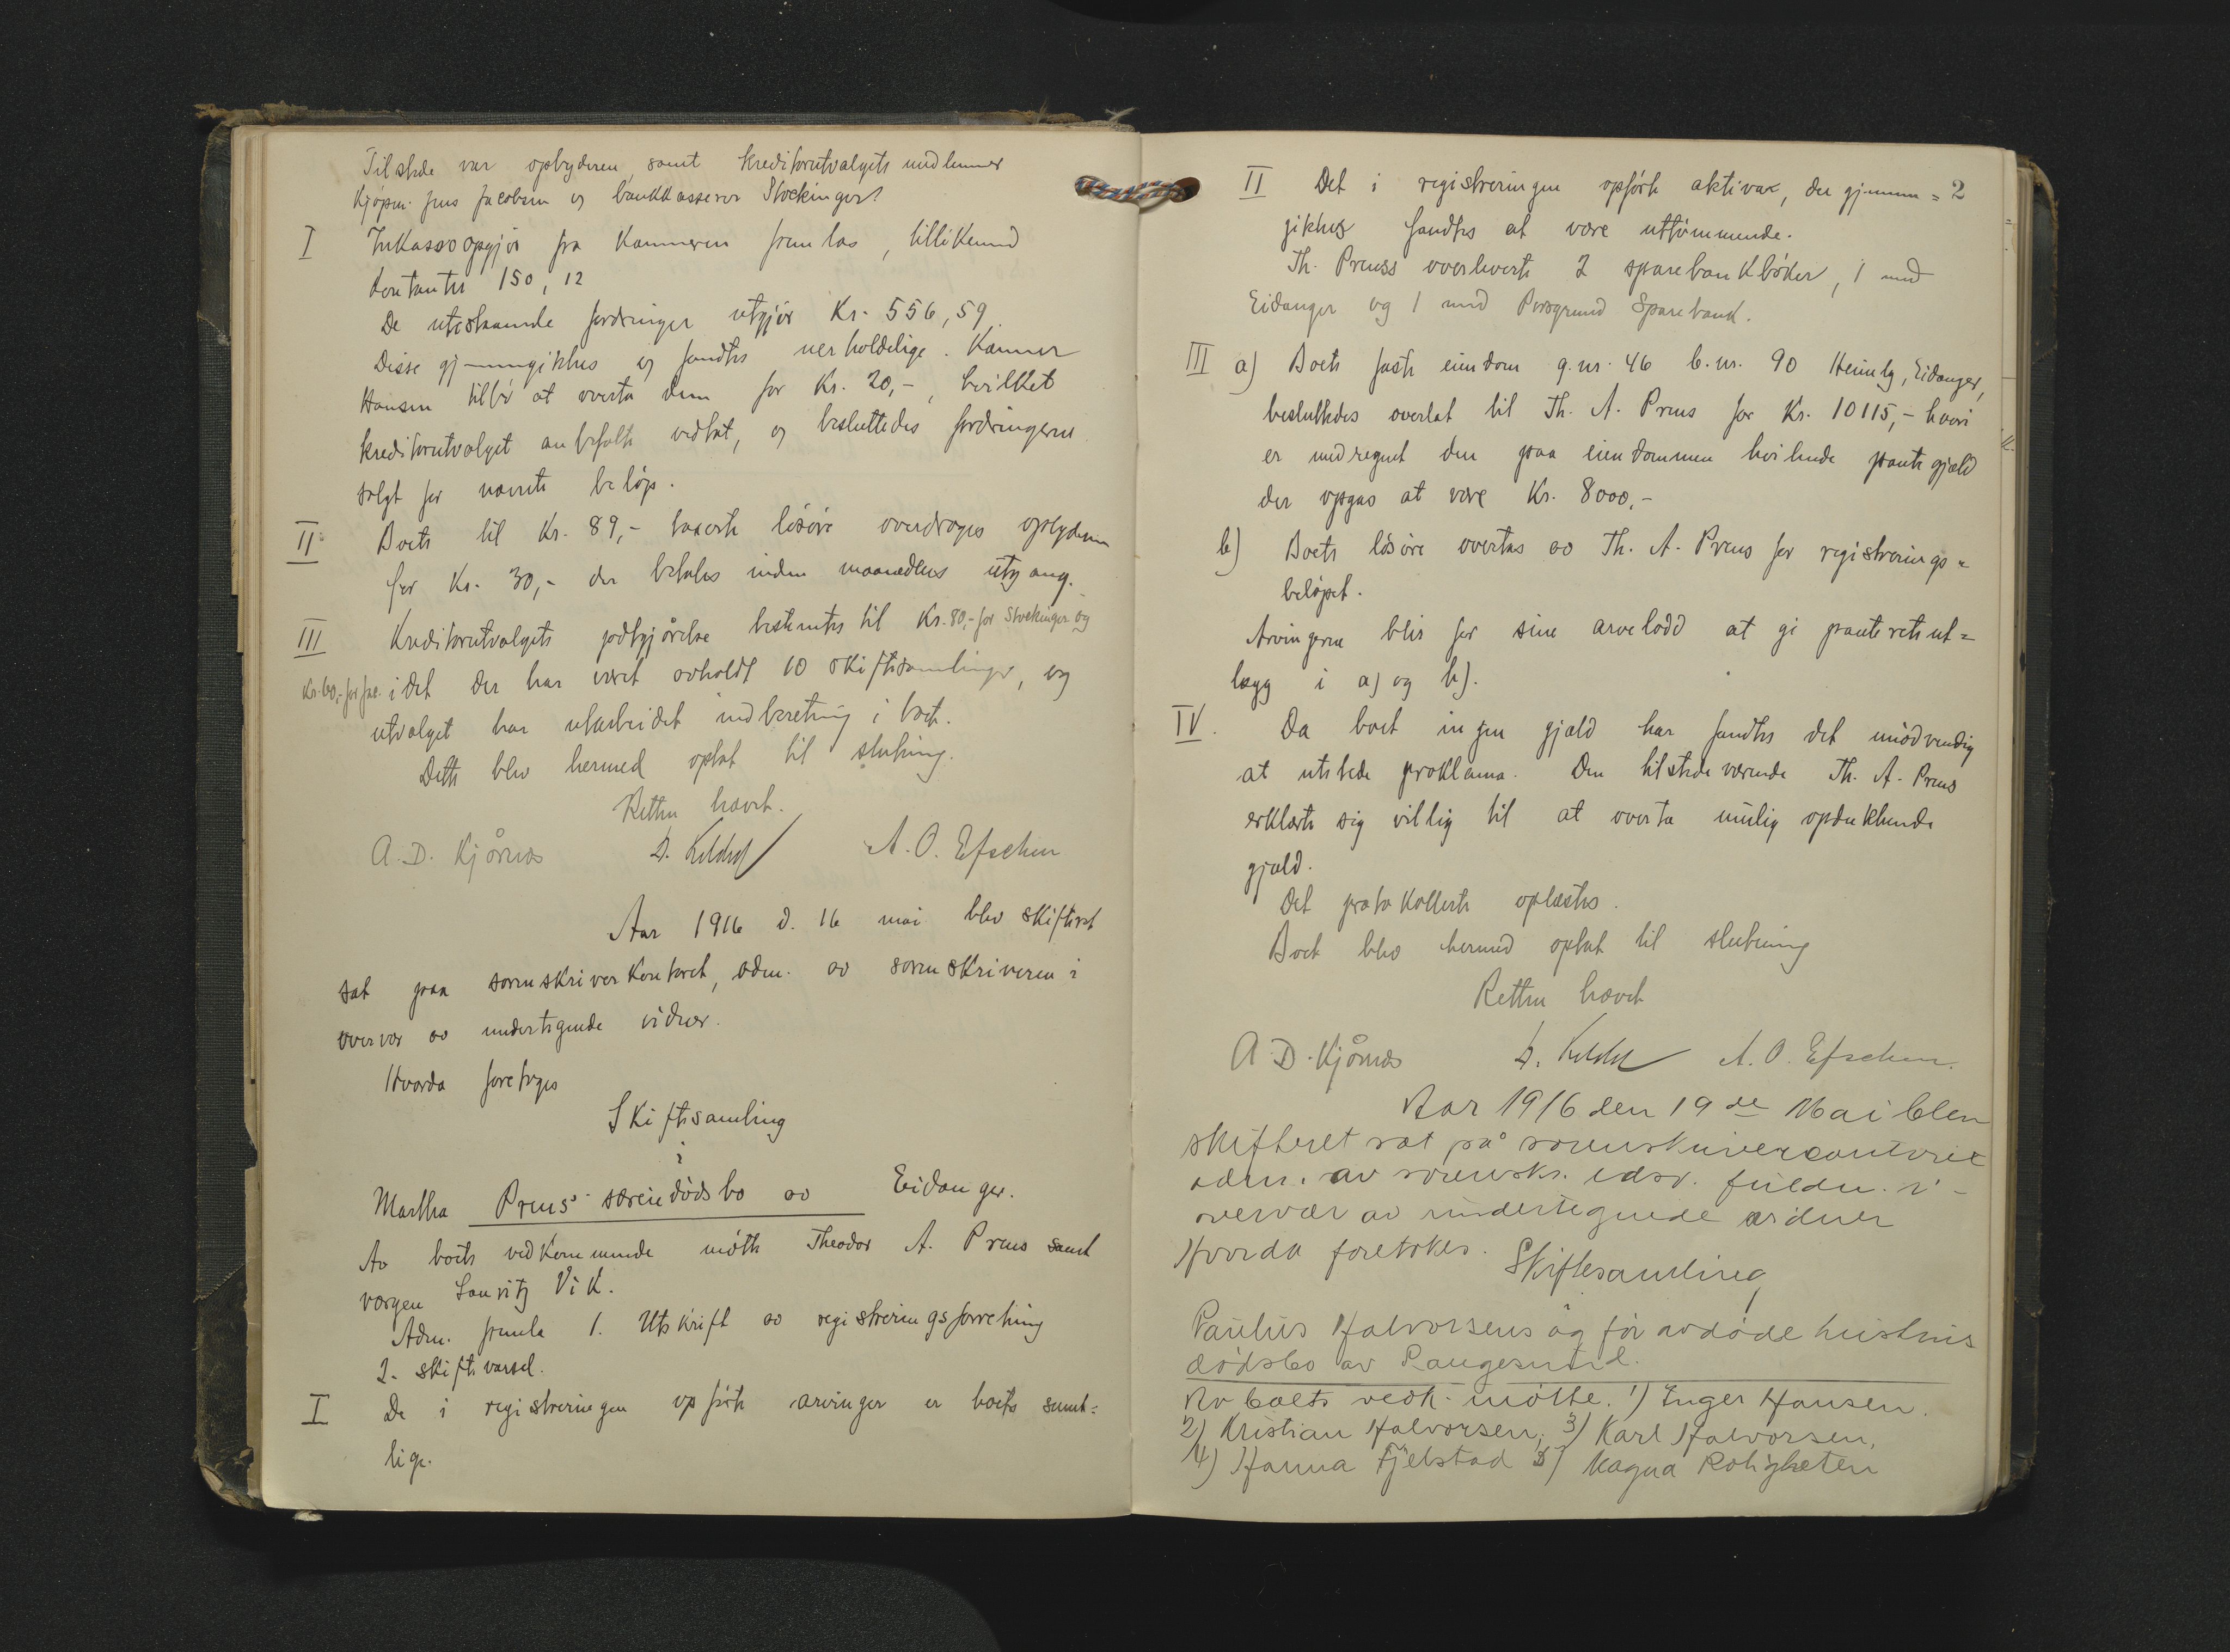 Tilstede var opbyderen, samt kreditorutvalgets medlemmer
kjøpm. Jens Jacobsen og bankkasserer Stockinger.
I Inkassoopgjør fra Kamneren fremlas, tillikemed
kontanter 150,12
De utestaaende fordringer utgjør Kr. 556,59.
Disse gjennemgikkes og fandtes uerholdelige. Kamner
Hansen tilbød at overta dem for Kr. 20,-, hvilket
kreditorutvalget anbefalte vedtat, og besluttedes fordringerne
solgt for nævnte beløp.
II Boets til Kr. 89,- taxerte løsøre overdrages opbyderen
for Kr. 30,- der betales inden maanedens utgang.
III Kreditorutvalgets godtgjørelse bestemtes til Kr. 80,- for Stockinger og
Kr. 60,- for Jac. idet der har været avholdt 10 skiftesamlinger, og
utvalget har utarbeidet indberetning i boet.
Dette blev hermed optat til slutning.
Retten hævet.
A. D. Kjørnæs A. O. Efschen
Aar 1916 d. 16 mai blev skifteret
sat paa sorenskriverkontoret, adm. av sorenskriveren i
overvær av undertegnede vidner.
Hvorda foretoges
Skiftesamling
i
Martha Preus' særeiedødsbo av Eidanger.
Av boets vedkommende møtte Theodor A. Preus samt
vergen Lauritz Vik.
Adm. fremla 1. Utskrift av registreringsforretning
2. skiftevarsel.
I De i registreringen opførte arvinger er boets samt=
lige.
2
II Det i registreringen opførte aktiva, der gjennem=
gikkes fandtes at være uttømmende.
Th. Preuss overleverte 2 sparebankbøker, 1 med
Eidanger og 1 med Porsgrund Sparebank.
III a) Boets faste eiendom g.nr. 46 b.nr. 90 Heimly, Eidanger,
besluttedes overlat til Th. A. Preus for Kr. 10115,- hvori
er medregnet den paa eiendommen hvilende pantegjæld
der opgas at være Kr. 8000,-
b) Boets løsøre overtas av Th. A. Preus for registrerings=
beløpet.
Arvingerne blir for sine arvelodd at gi panteretsut=
lægg i a) og b).
IV. Da boet ingen gjæld har fandtes det unødvendig
at utstede proklama. Den tilstedeværende Th. A. Preus
erklærte sig villig til at overta mulig opdukkende
gjæld.
Det protokollerte oplæstes.
Boet blev hermed optat til slutning
Retten hævet
A. D. Kjørnæs A. O. Efschen.
Aar 1916 den 19de Mai blev
skifteret sat på sorenskrivercontoret
adm. av sorensk. edsv. fuldm. i
overvær av undertegnede vidner
Hvorda foretokes. Skiftesamling
Paulus Halvorsens og før avdøde hustrus
dødsbo av Langesund.
Av boets vedk. møtte. 1) Inger Hansen.
2) Kristian Halvorsen, 3) Karl Halvorsen,
4) Hanna Fjelstad 5) Magna Roligheten